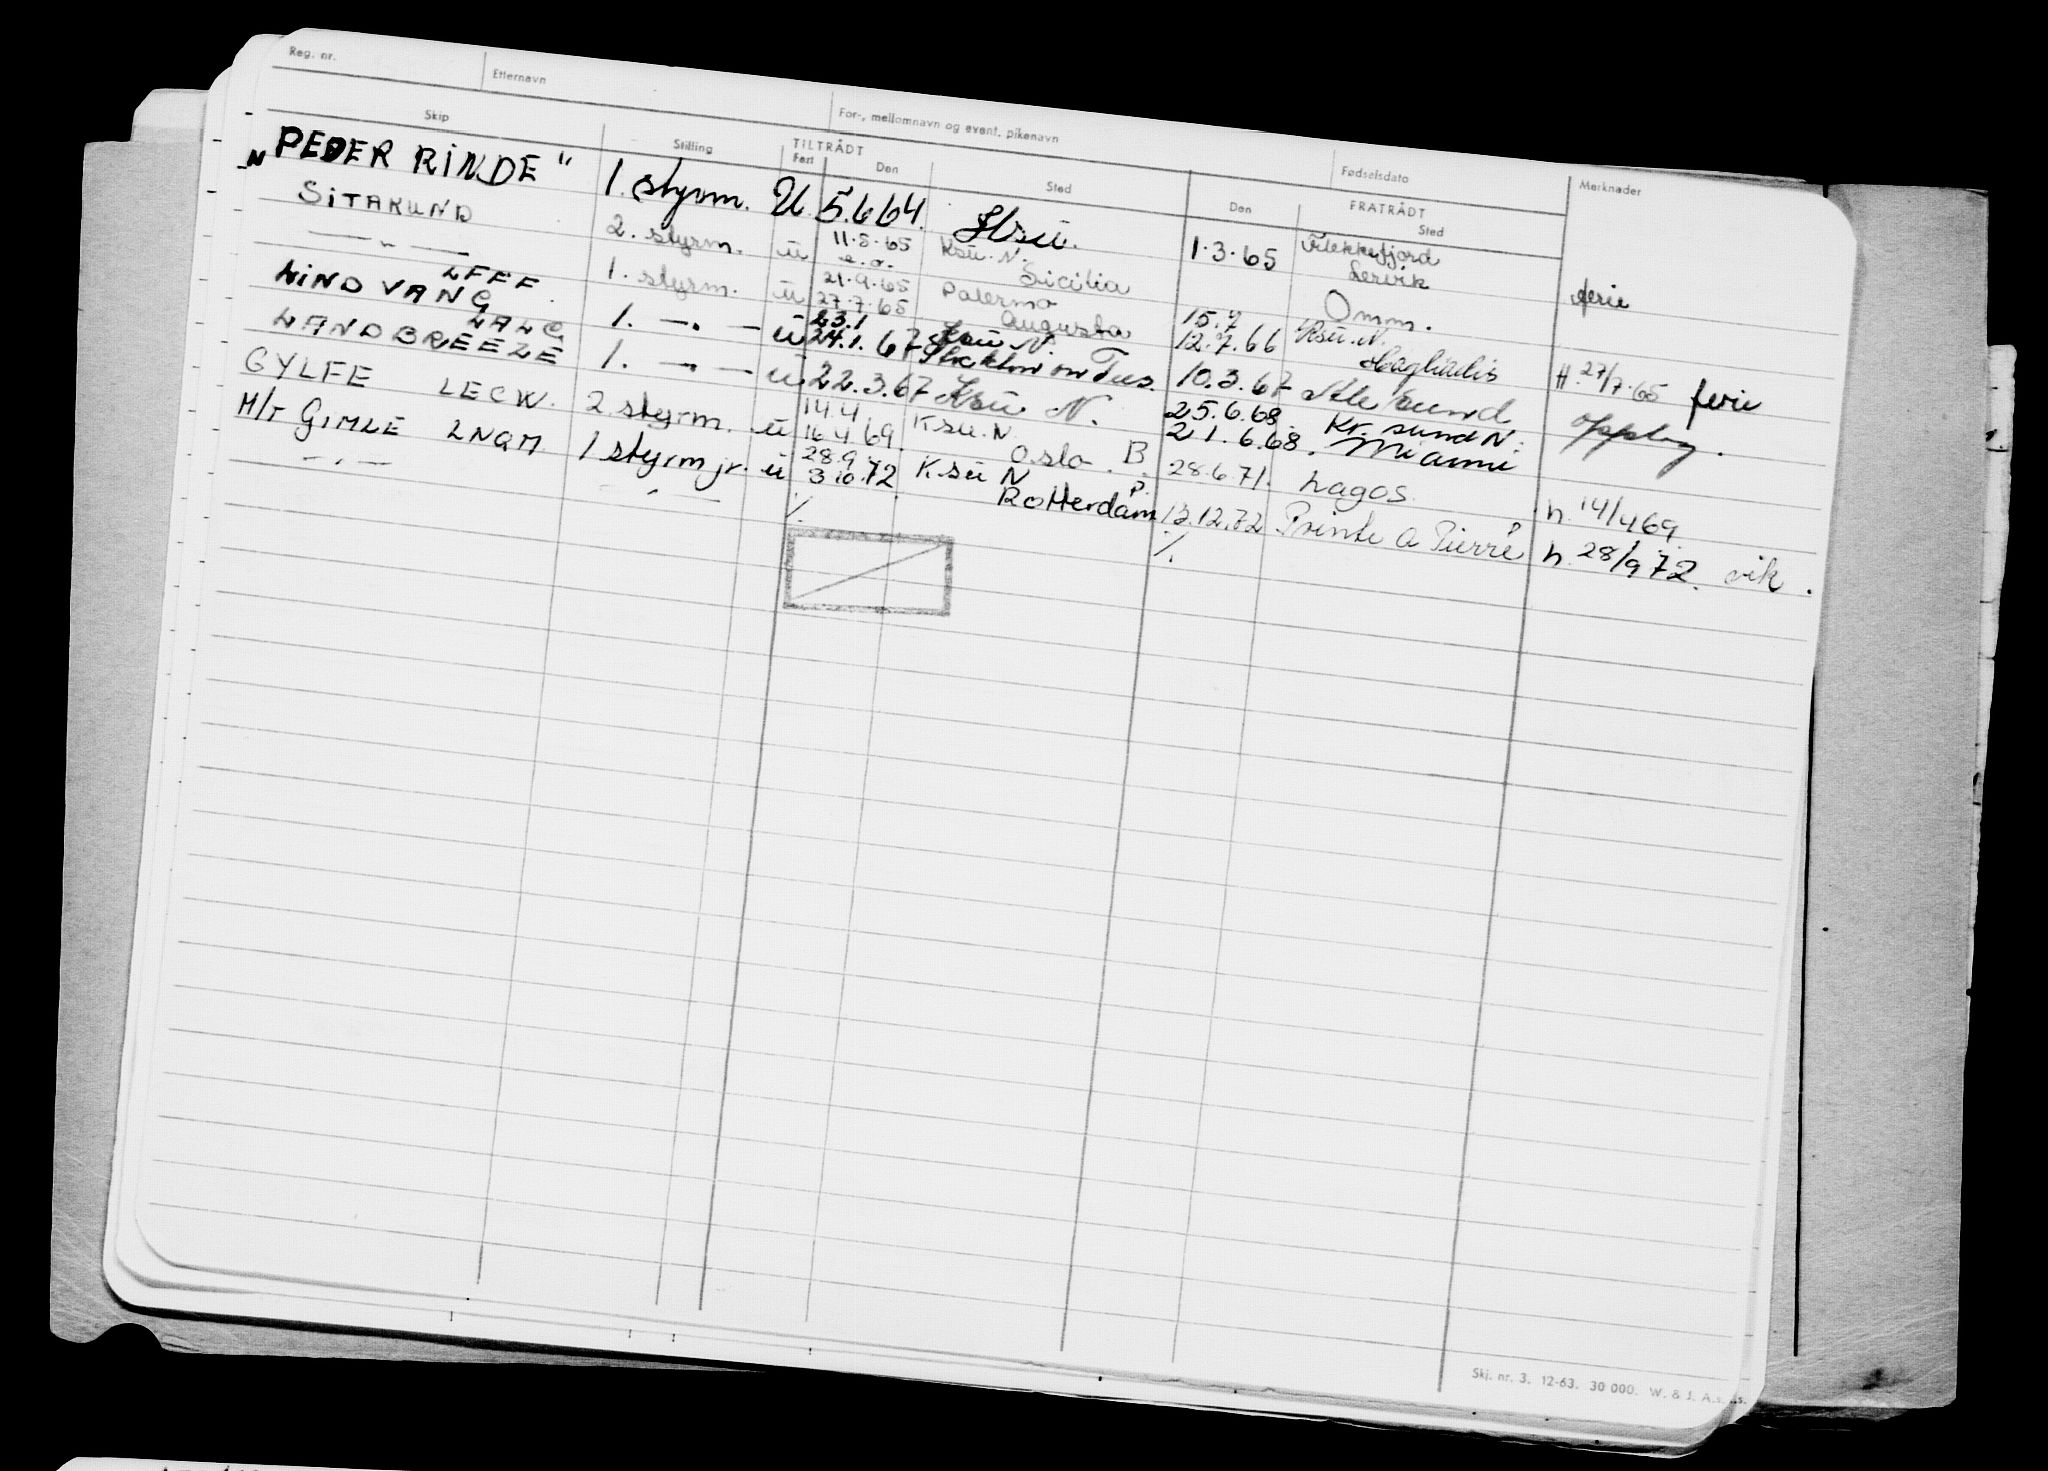 Reg. nr. Etternavn For-, mellomnavn og event. pikenavn Fødselsdato Merknader
Skip Stilling TILTRÅDT FRATRÅDT
Fart Den Sted Den Sted
„PEDER RINDE" 1. styrm. U 5.6 64. Ksu. 1.3.65 Flekkefjord
SITAKUND 2. styrm. u 11.5.65 Ksu. N. Lervik ferie
e.o. Sicilia
— " — LFFF. 1. styrm. u 21.9.65 Palermo Omm.
27.7.65 Augusta 15.7
LINDVANG LALC 1. — . — u 23.1 Ksu N. 12.7.66 Ksu. N. H. 27/7.65 ferie
24.1.67 Stockton on Tees.
LANDBREEZE 1. — . — u 22.3.67 Ksu N. 10.3.67 Ålesund opplag.
25.6.68 Kr. sund N.
GYLFE LECW. 2 styrm. u 14.4 Ksu. N 21.6.68. Miami
16.4 69. Oslo. B.
M/T GIMLE LNQM 1 styrm jr. u 28.9 Ksu N 28.6.71. Lagos. h. 14/4 69
3.10.72 Rotterdam P.
— " — — " — /. 13.12.72 Pointe a Pierre P h. 28/9 72. vik.
/.
Skj. nr. 3. 12-63. 30 000. W. & J. A.s.